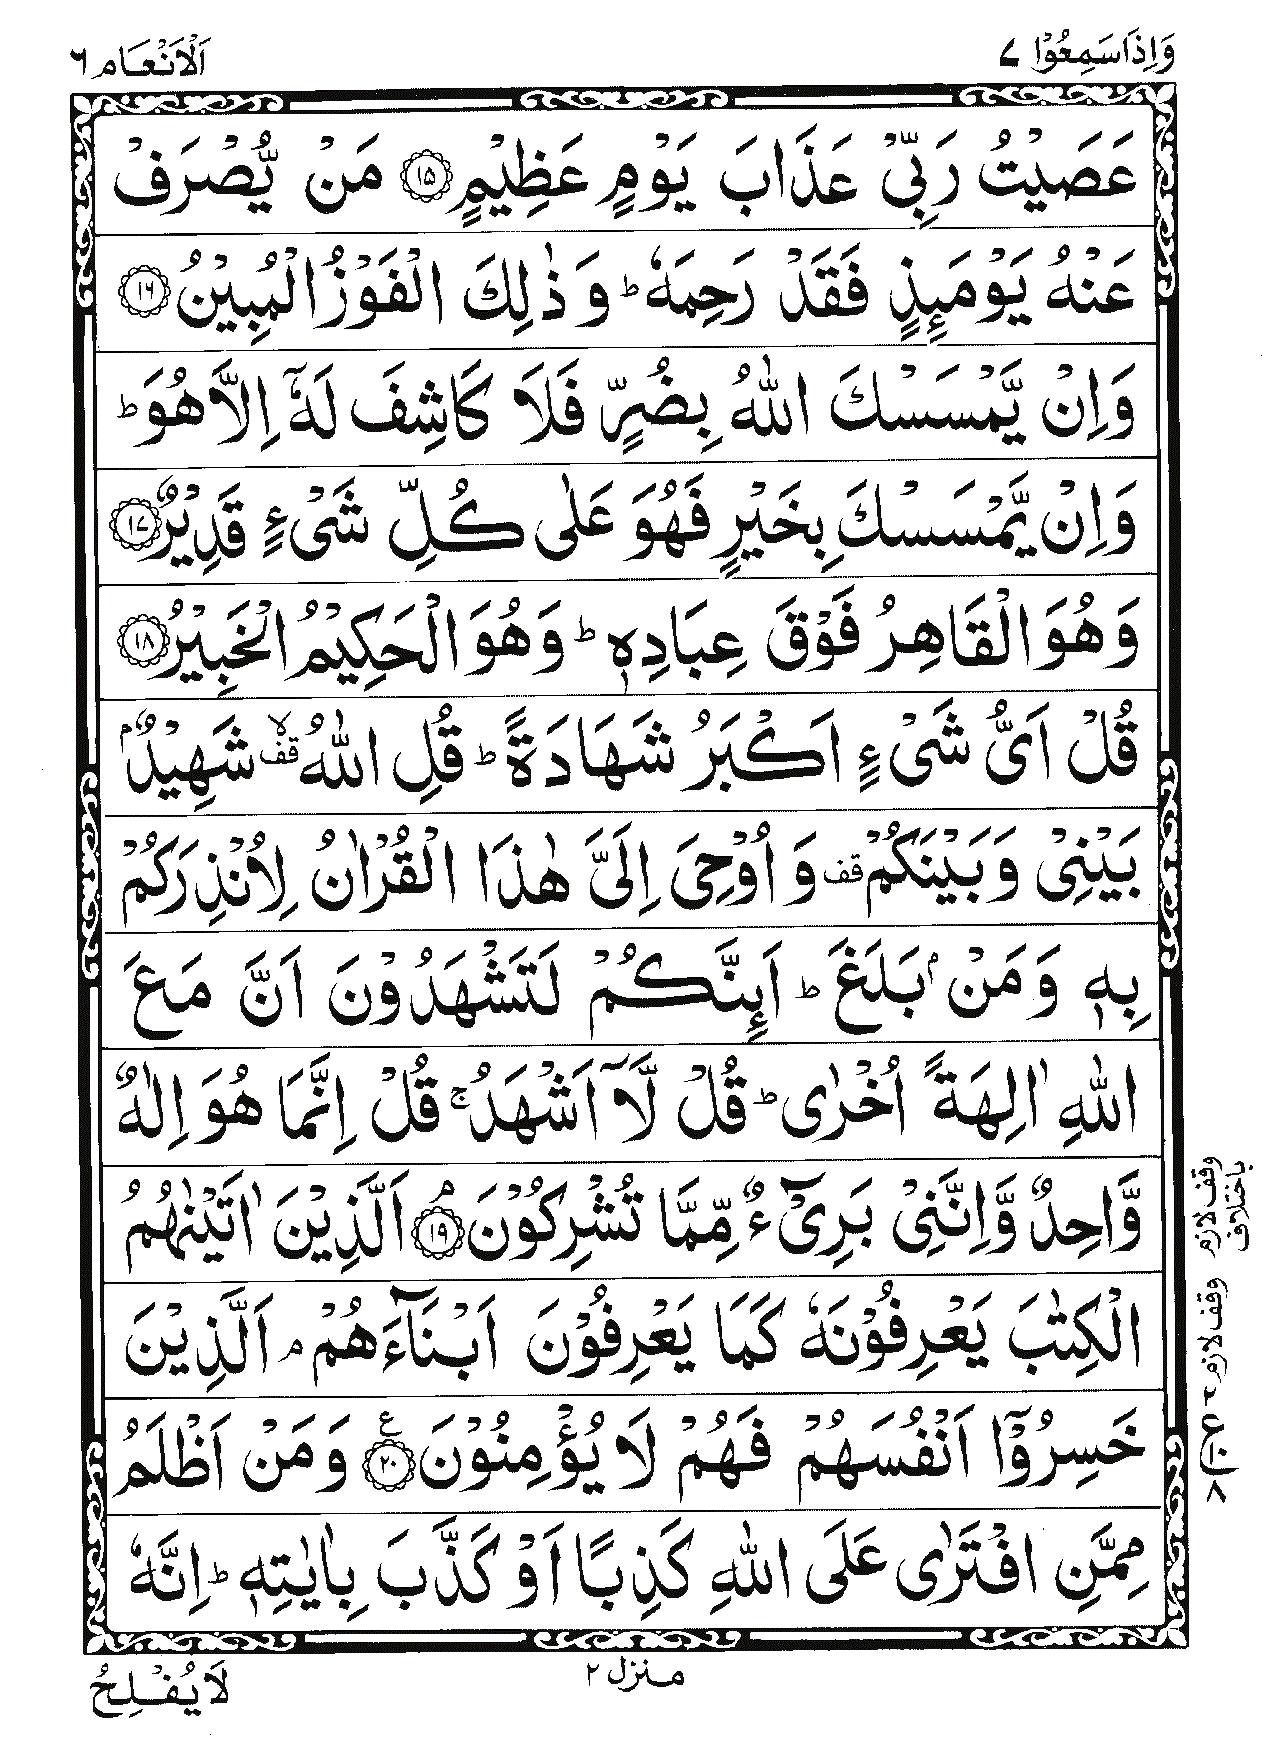 وَاِذَا سَمِعُوْا ٧
اَلْاَنْعَام ٦
عَصَيْتُ رَبِّيْ عَذَابَ يَوْمٍ عَظِيْمٍ ۝١٥ مَنْ يُّصْرَفْ
عَنْهُ يَوْمَىِٕذٍ فَقَدْ رَحِمَهٗ ؕ وَ ذٰلِكَ الْفَوْزُ الْمُبِيْنُ ۝١٦
وَاِنْ يَّمْسَسْكَ اللّٰهُ بِضُرٍّ فَلَا كَاشِفَ لَهٗۤ اِلَّا هُوَ ؕ
وَاِنْ يَّمْسَسْكَ بِخَيْرٍ فَهُوَ عَلٰى كُلِّ شَيْءٍ قَدِيْرٌ ۝١٧
وَهُوَ الْقَاهِرُ فَوْقَ عِبَادِهٖ ؕ وَهُوَ الْحَكِيْمُ الْخَبِيْرُ ۝١٨
قُلْ اَيُّ شَيْءٍ اَكْبَرُ شَهَادَةً ؕ قُلِ اللّٰهُ ۙقف شَهِيْدٌۢ
بَيْنِيْ وَبَيْنَكُمْ قف وَ اُوْحِيَ اِلَيَّ هٰذَا الْقُرْاٰنُ لِاُنْذِرَكُمْ
بِهٖ وَمَنْۢ بَلَغَ ؕ اَىِٕنَّكُمْ لَتَشْهَدُوْنَ اَنَّ مَعَ
اللّٰهِ اٰلِهَةً اُخْرٰى ؕ قُلْ لَّاۤ اَشْهَدُ ۚ قُلْ اِنَّمَا هُوَ اِلٰهٌ
وَّاحِدٌ وَّاِنَّنِيْ بَرِيْٓءٌ مِّمَّا تُشْرِكُوْنَ ۝١٩ۘ اَلَّذِيْنَ اٰتَيْنٰهُمُ
الْكِتٰبَ يَعْرِفُوْنَهٗ كَمَا يَعْرِفُوْنَ اَبْنَآءَهُمْ ۘ اَلَّذِيْنَ
خَسِرُوْۤا اَنْفُسَهُمْ فَهُمْ لَا يُؤْمِنُوْنَ ۝٢٠ ع وَمَنْ اَظْلَمُ
مِمَّنِ افْتَرٰى عَلَى اللّٰهِ كَذِبًا اَوْ كَذَّبَ بِاٰيٰتِهٖ ؕ اِنَّهٗ
وقف لازم
باختلاف
وقف لازم
٢
ع
١٠
٨
منزل ٢
لَا يُفْلِحُ